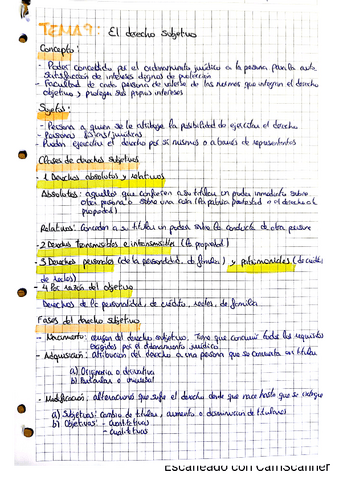 TEMA 9: El derecho subjetivo
Concepto:
- Poder concedido por el ordenamiento jurídico a la persona para la auto
satisfacción de intereses dignos de protección
- Facultad de cada persona de valerse de las normas que integran el derecho
objetivo y proteger sus propios intereses
Sujetos:
- Persona a quien se le atribuye la posibilidad de ejercitar el derecho
- Personas físicas/jurídicas
- Pueden ejercitar el derecho por sí mismos o a través de representantes
Clases de derechos subjetivos
- 1 Derechos absolutos y relativos
Absolutos: aquellos que confieren a su titular un poder inmediato sobre
otra persona o sobre una cosa (la patria potestad o el derecho a la
propiedad)
Relativos: Conceden a su titular un poder sobre la conducta de otra persona
- 2 Derechos Transmisibles e intransmisibles (la propiedad)
- 3 Derechos personales (de la personalidad, de familia) y patrimoniales (de crédito
de reales)
- 4 Por razón del objetivo
Derechos de la personalidad, de crédito, reales, de familia
Fases del derecho subjetivo
- Nacimiento: origen del derecho subjetivo. Tiene que concurrir todos los requisitos
exigidos por el ordenamiento jurídico.
- Adquisición: atribución del derecho a una persona que se convierte en titular
a) Originaria o derivativa
b) Particular o universal
- Modificación: alteraciones que sufre el derecho desde que nace hasta que se extingue
a) Subjetivas: cambio de titular, aumento o disminución de titulares
b) Objetivas: - cuantitativas
- cualitativas
Escaneado con CamScanner